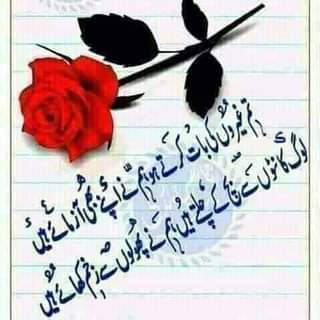 تم غیروں کی بات کرتے ہو ہم نے اپنے بھی آزمائے ہیں
لوگ کانٹوں سے بچ کے چلتے ہیں ہم نے پھولوں سے زخم کھائے ہیں